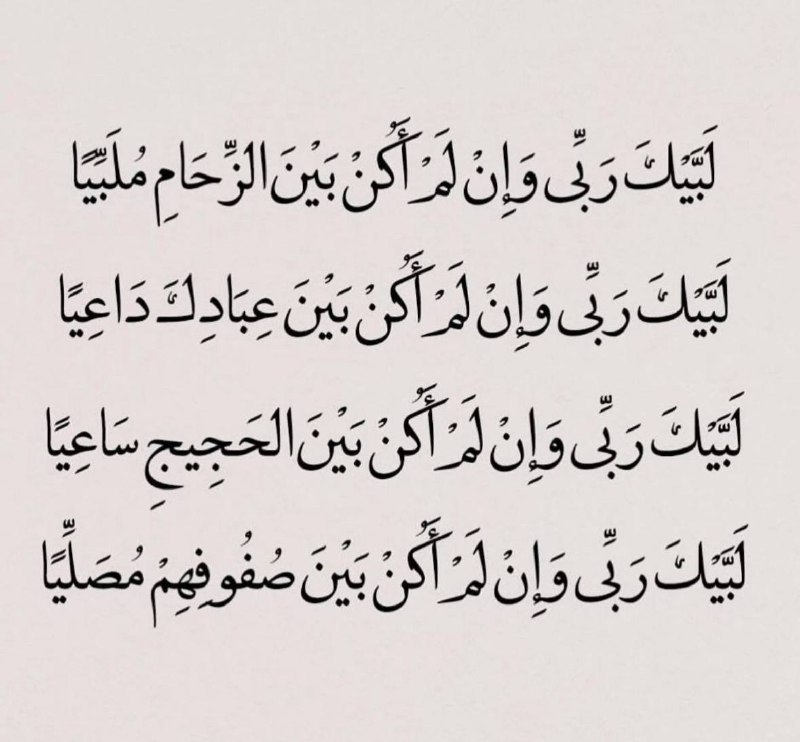 لَبَّيْكَ رَبِّى وَإِنْ لَمْ أَكُنْ بَيْنَ الزِّحَامِ مُلَبِّيًّا
لَبَّيْكَ رَبِّى وَإِنْ لَمْ أَكُنْ بَيْنَ عِبَادِكَ دَاعِيًا
لَبَّيْكَ رَبِّى وَإِنْ لَمْ أَكُنْ بَيْنَ الحَجِيجِ سَاعِيًا
لَبَّيْكَ رَبِّى وَإِنْ لَمْ أَكُنْ بَيْنَ صُفُوفِهِمْ مُصَلِّيًا